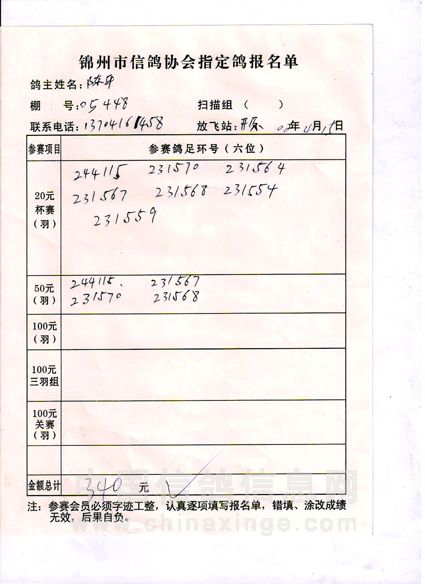 锦州市信鸽协会指定鸽报名单
鸽主姓名:
棚 号:05448 扫描组 ( )
联系电话: 放飞站:开原
参赛项目 参赛鸽足环号(六位)
20元杯赛(羽) 244115 231570 231564
231567 231568 231554
231559
50元(羽) 244115. 231567
231570 231568
100元(羽)
100元三羽组
100元关赛(羽)
金额总计 340 元
注: 参赛会员必须字迹工整,认真逐项填写报名单,错填、涂改成绩
无效,后果自负。
中国信鸽信息网
www.chinaxinge.com